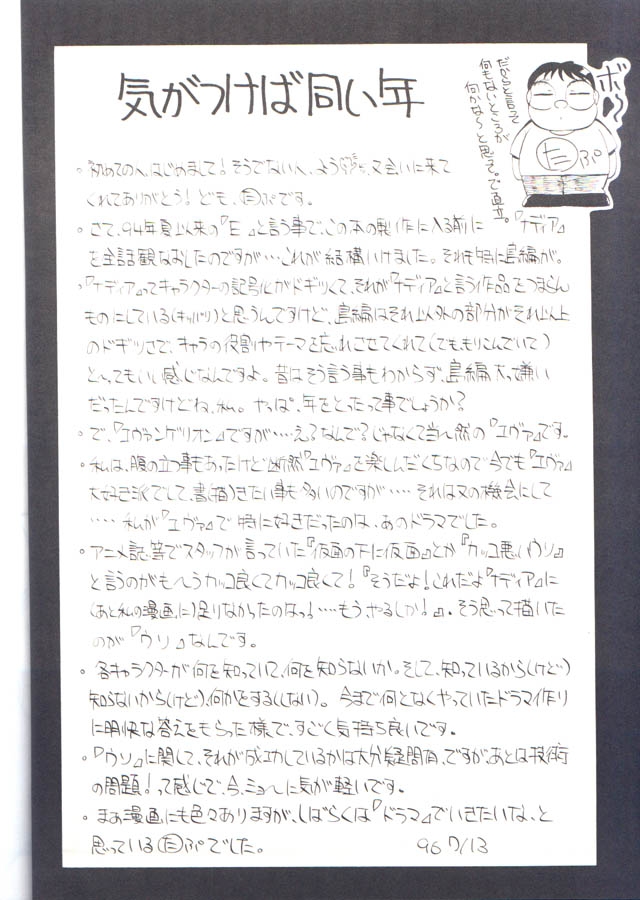 気がつけば同い年
ボ〜
だからと言って
何もないところが
何かな〜と思って。で直立。
たぷ
・初めての人、はじめまして!そうでない人、よう 会いに来て
くれてありがとう!ども、たぷです。
・さて、94年夏以来の『E』と言う事で、この本の製作に入る前に『ナディア』
を全話観なおしたのですが…これが結構いけました。それも特に島編が。
・『ナディア』ってキャラクターの記号化がドギツくて、それが『ナディア』と言う作品をつまらん
ものにしている(キッパリ)と思うんですけど、島編はそれ以外の部分がそれ以上
のドギツさで、キャラの役割やテーマを忘れさせてくれて(でも、もりこんでいて)
と〜ってもいい感じなんですよ。昔はそう言う事もわからず、島編大っ嫌い
だったんですけどね、私。やっぱ、年をとったって事でしょうか?
・で、『エヴァンゲリオン』ですが…え?なんで?じゃなくて当然の『エヴァ』です。
・私は、腹の立つ事もあったけど断然『エヴァ』を楽しんだくちなので今でも『エヴァ』
大好き派でして、書(描)きたい事も多いのですが…‥それはマの機会にして
…‥私が『エヴァ』で特に好きだったのは、あのドラマでした。
・アニメ誌等でスタッフが言っていた『仮面の下に仮面』とか『カッコ悪いウソ』
と言うのがも〜うカッコ良くてカッコ良くて!『そうだよ!これだよ『ナディア』に
(あと私の漫画に)足りなかったのなっ!…‥もう、やるしか!』。そう思って描いた
のが『ウソ』なんです。
・各キャラクターが何を知っていて、何を知らないか。そして、知っているから(けど)
知らないから(けど)、何かをする(しない)。今まで何となくやっていたドラマ作り
に明快な答えをもらった様で、すごく気持ち良いです。
・『ウソ』に関して、それが成功しているかは大分疑問有、ですが、あとは技術
の問題!って感じで、今、ミョ〜に気が軽いです。
・まぁ漫画にも色々ありますが、しばらくは『ドラマ』でいきたいな、と
思っているたぷでした。 96 7/13